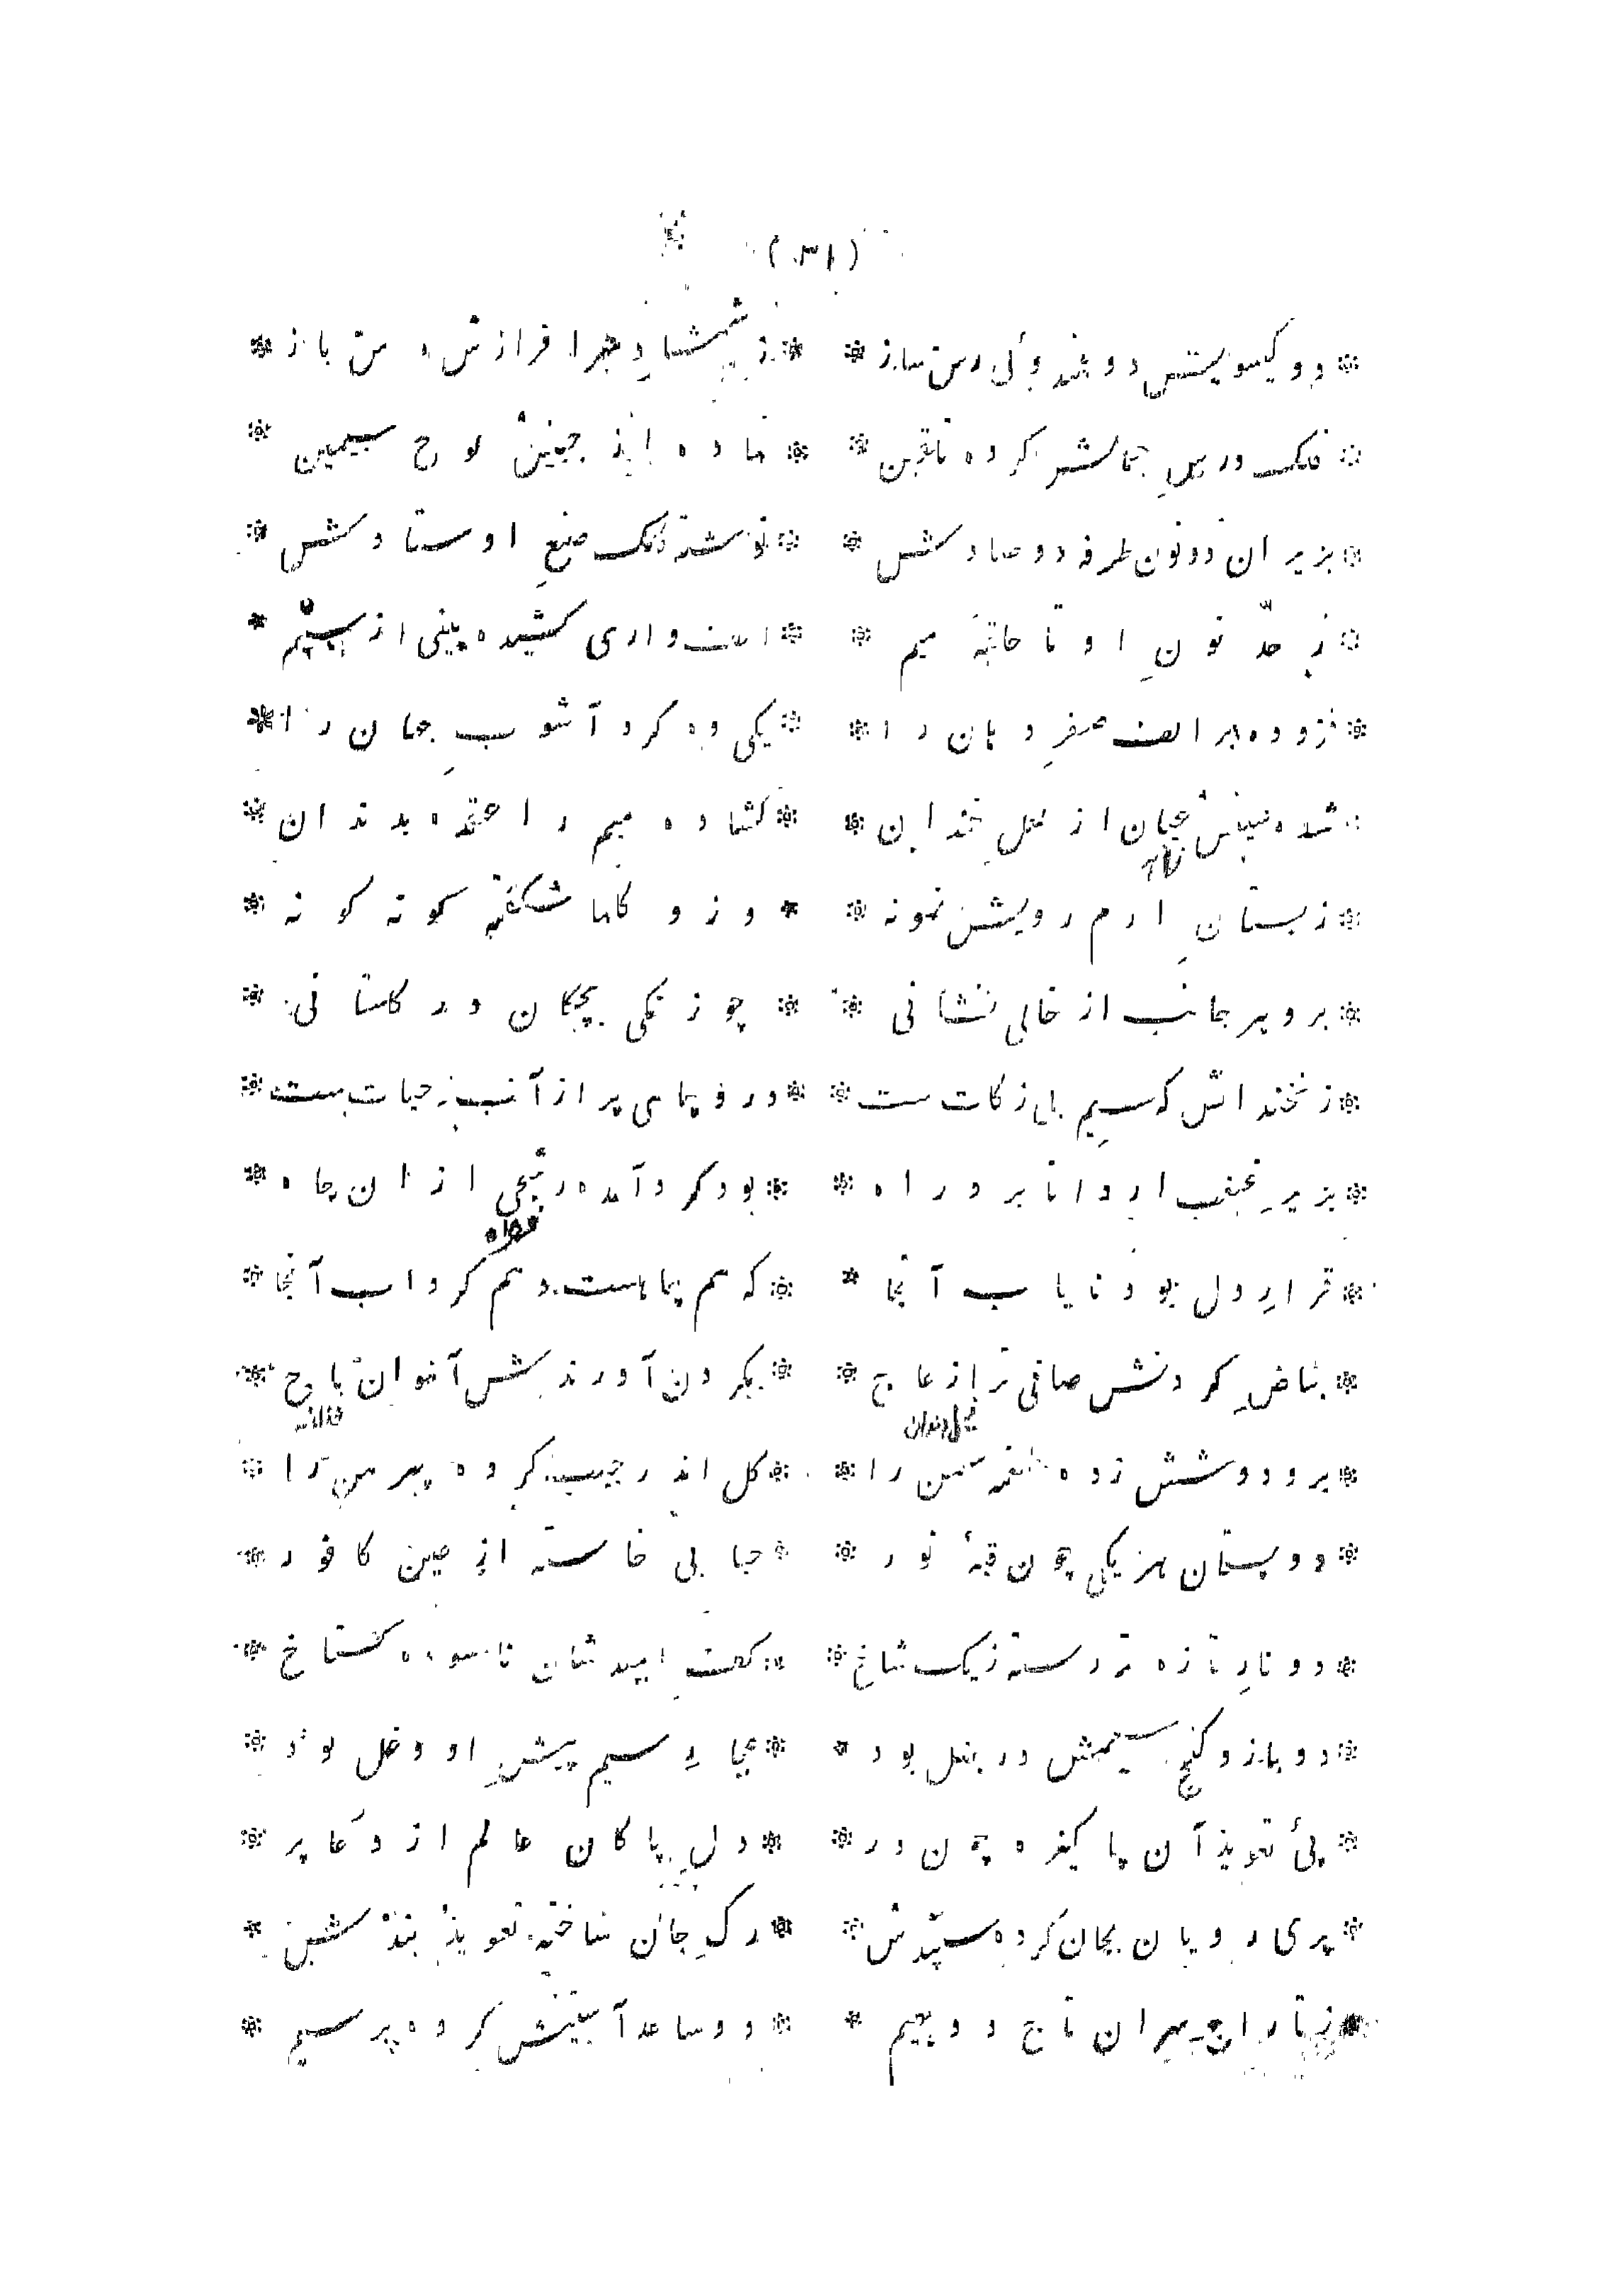 (۳۱)
* دو گیسویش دو هندوئی رسن ساز * ز شمشاد سرافرازش رسن باز *
* فلک درس جمالش کرده تلقین * نهاده از جبینش لوح سیمین *
* بزیر آن دو نون طرفه دو صادش * نوشته کلک صنع اوستادش *
* ز حدّ نونِ او تا حلقهٔ میم * الف واری کشیده بینی از سیم *
* فزوده بر الف صفرِ دهان را * یکی ده کرد آشوبِ جهان را *
* شده سینش عیان از لعل خندان * کشاده میم را عقده بدندان *
* ز بستانِ ارم رویش نمونه * وزو گلها شگفته گونه گونه *
* برو هر جانب از خالی نشانی * چو زنگی بچگان در گلستانی *
* زنخدانش که سیم بی زکات ست * درو چاهی پر از آب حیات ست *
* بزیرِ غبغب ار دانا برد راه * بود گرد آمده رشحی از ان چاه *
قطره
* قرارِ دل بود نایاب آنجا * که هم چاهست و هم گرداب آنجا *
* بیاضِ گردنش صافی تر از عاج * بگردن آورندش آهوان باج *
فیل دندان
* برو دوشش زده طعنه سمن را * گل اندر جیب کرده پیرهن را *
* دو پستان هر یکی چون قبهٔ نور * حبابی خاسته از عین کافور *
* دو نارِ تازه تر رسته ز یک شاخ * کفِ امید شان ناسوده گستاخ *
* دو بازو گنج سیمش در بغل بود * عیارِ سیم پیشِ او دغل بود *
* پئ تعویذ آن پاکیزه چون در * دلِ پاکان عالم از دعا پر *
* پری رویان بجان کرده سپندش * رگِ جان ساخته تعویذ بندش *
* ز تاراج سران تاج و دیهیم * دو ساعد آستینش کرده پر سیم *